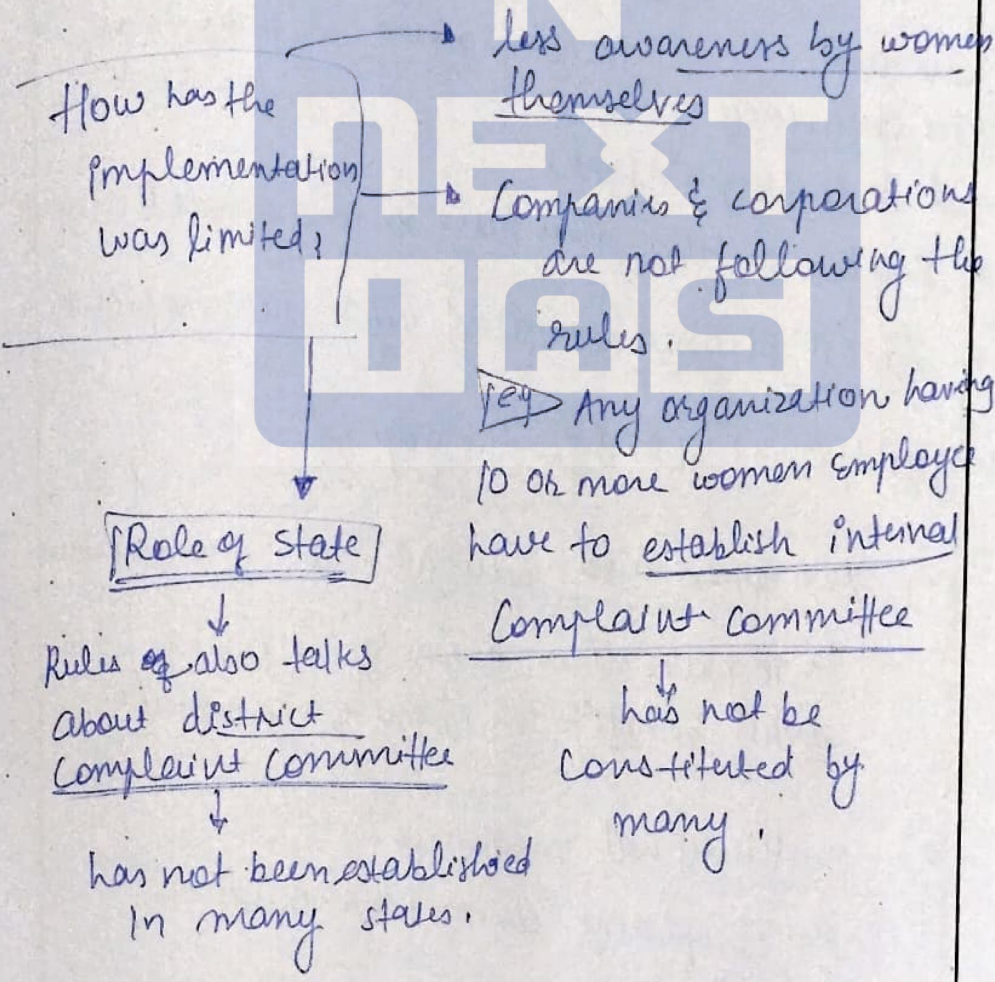 How has the
implementation
was limited?
less awareness by women
themselves
Companies & corporations
are not following the
rules.
eg Any organization having
10 or more women employee
have to establish internal
Complaint committee
has not be
constituted by
many.
Role of State
Rules of also talks
about district
complaint committee
has not been established
in many states.
NEXT
IAS